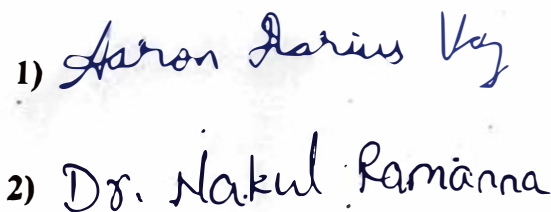 1) Aaron Darius Vaz
2) Dr. Nakul Ramanna